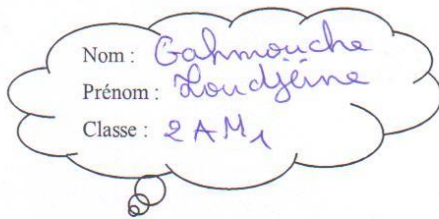 Nom : Gahmouche
Prénom : Loudjeine
Classe : 2 AM1